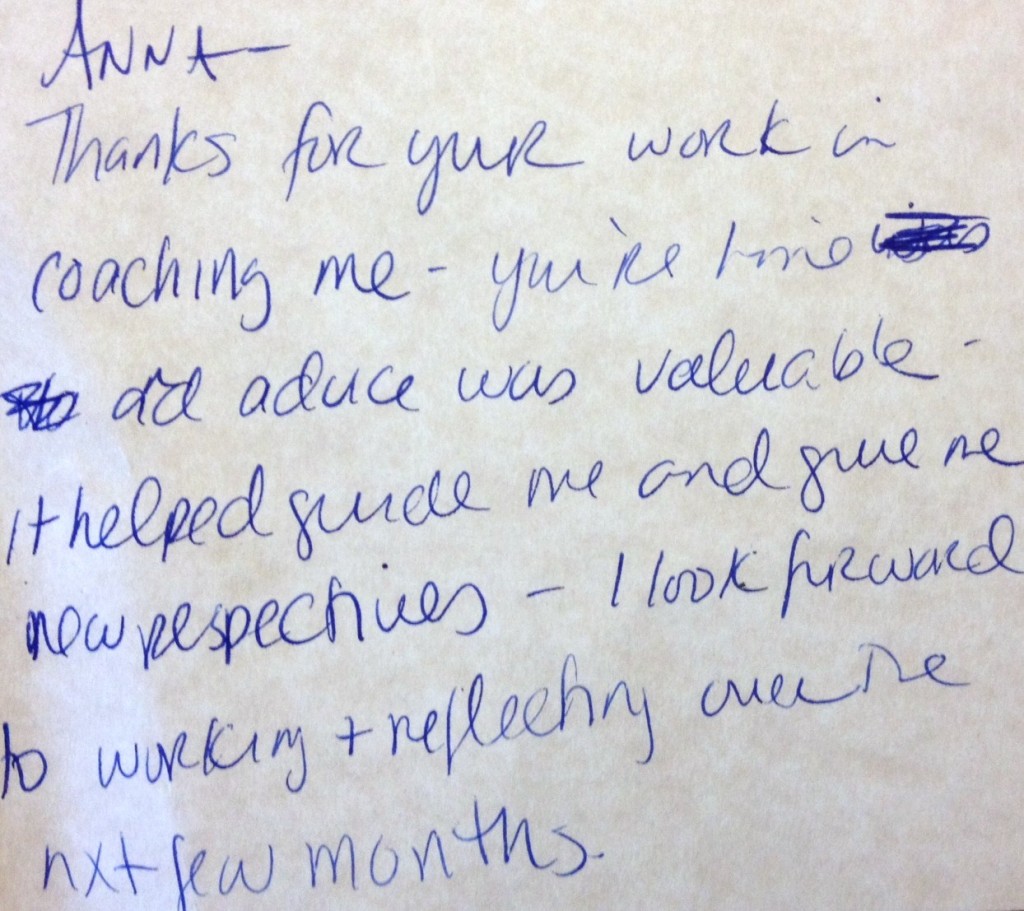 ANNA-
Thanks for your work in
coaching me - you're time
and advice was valuable -
it helped guide me and give me
new perspectives - I look forward
to working + reflecting over the
nxt few months.